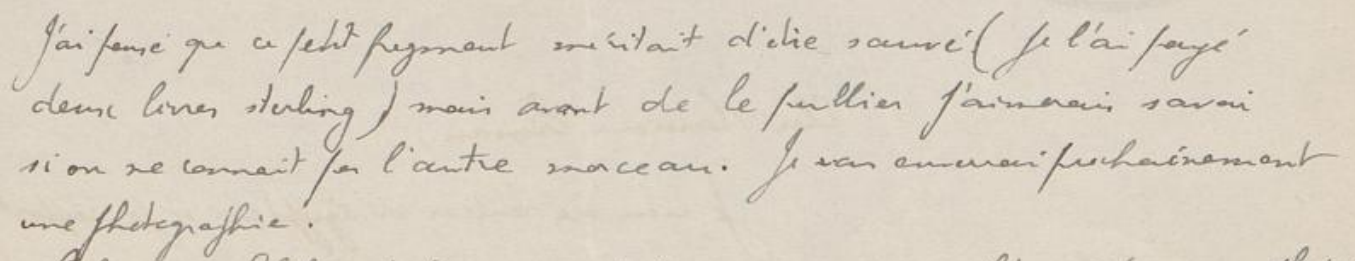 J'ai pensé que ce petit fragment méritait d'être sauvé (je l'ai payé
deux livres sterling) mais avant de le publier j'aimerais savoir
si on ne connait pas l'autre morceau. Je vous enverrai prochainement
une photographie.